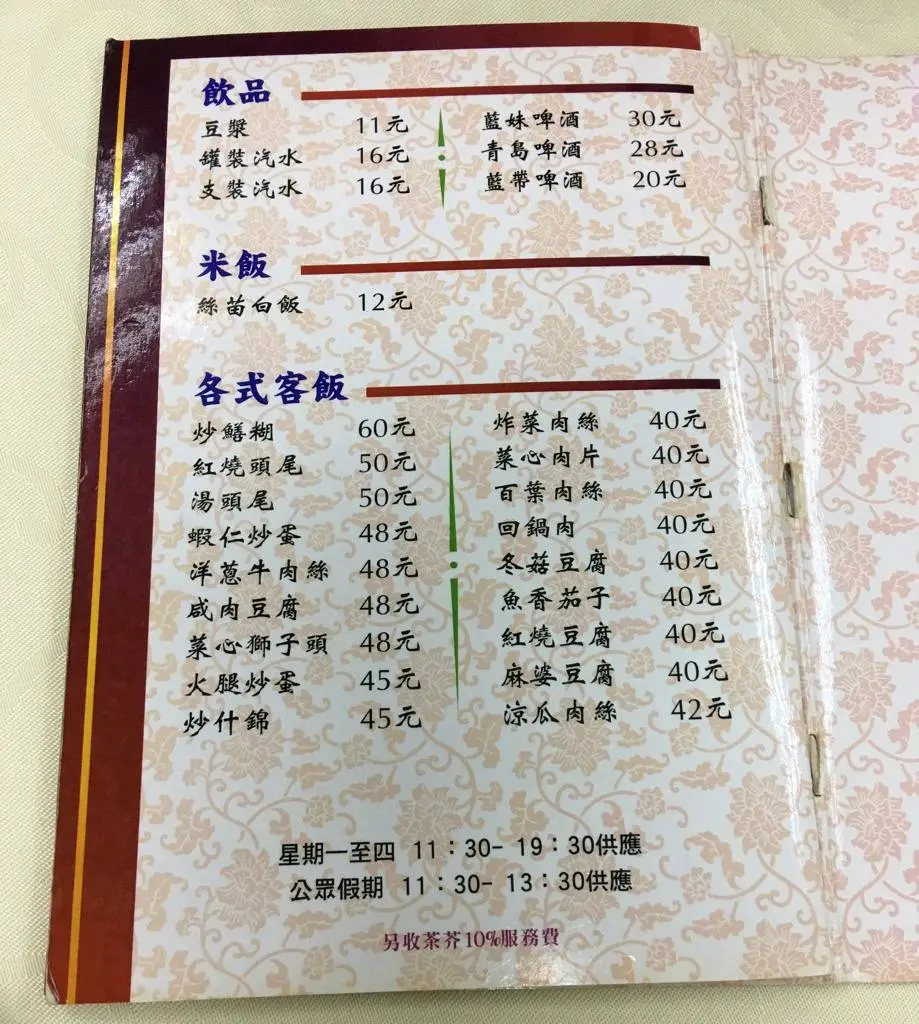 飲品
豆漿 11元
罐裝汽水 16元
支裝汽水 16元
藍妹啤酒 30元
青島啤酒 28元
藍帶啤酒 20元
米飯
絲苗白飯 12元
各式客飯
炒鱔糊 60元
紅燒頭尾 50元
湯頭尾 50元
蝦仁炒蛋 48元
洋蔥牛肉絲 48元
咸肉豆腐 48元
菜心獅子頭 48元
火腿炒蛋 45元
炒什錦 45元
炸菜肉絲 40元
菜心肉片 40元
百葉肉絲 40元
回鍋肉 40元
冬菇豆腐 40元
魚香茄子 40元
紅燒豆腐 40元
麻婆豆腐 40元
涼瓜肉絲 42元
星期一至四 11：30- 19：30供應
公眾假期 11：30- 13：30供應
另收茶芥10%服務費